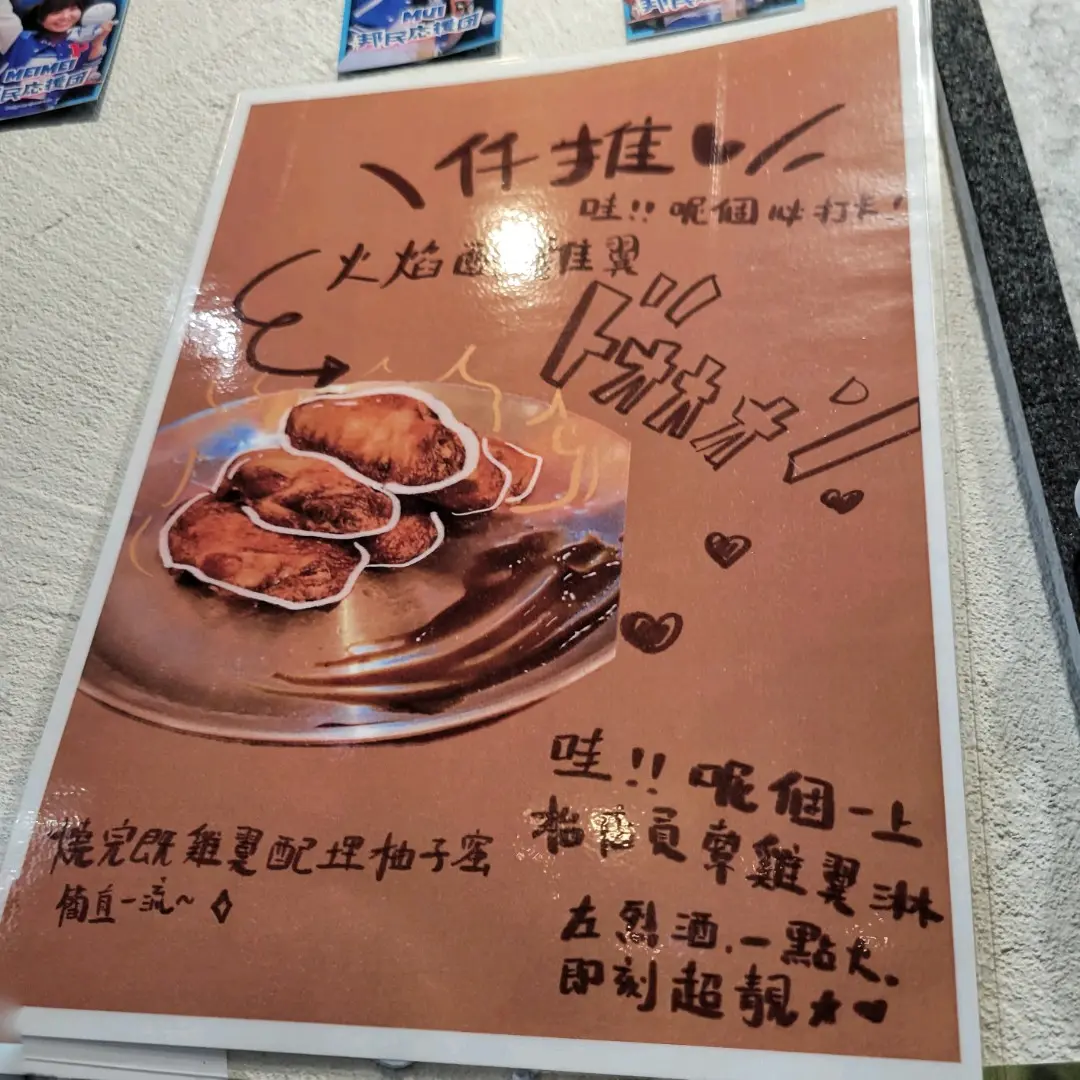 MEIMEI
民応援団
MUI
邦民応援団
仔推
哇!! 呢個必打卡!
火焰醉雞翼
哇!! 呢個一上
枱店員拿雞翼淋
左烈酒.一點火.
即刻超靚
燒完既雞翼配埋柚子蜜
簡直一流~